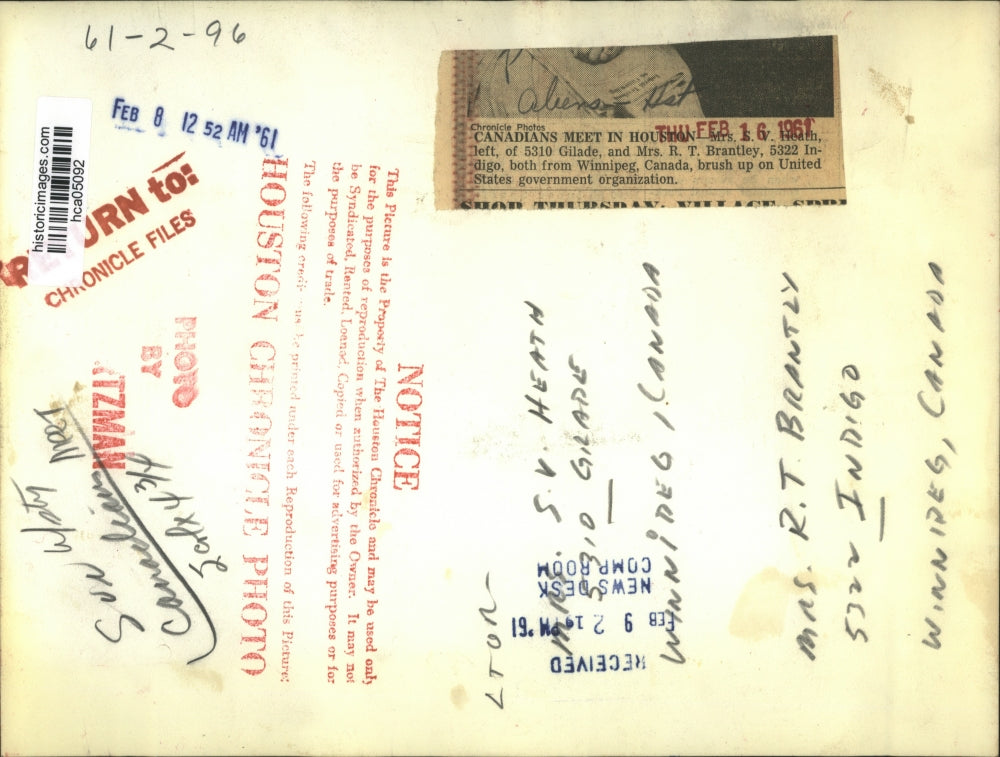 61-2-96
FEB 8 12 52 AM '61
historicimages.com
hca05092
RETURN to:
CHRONICLE FILES
PHOTO
BY
Canadian
Chronicle Photos
THU FEB 16 1961
CANADIANS MEET IN HOUSTON—Mrs. S. V. Heath,
left, of 5310 Gilade, and Mrs. R. T. Brantley, 5322 In-
digo, both from Winnipeg, Canada, brush up on United
States government organization.
SHOP THURSDAY, VILLAGE
NOTICE
This Picture is the Property of The Houston Chronicle and may be used only
for the purposes of reproduction when authorized by the Owner. It may not
be Syndicated, Rented, Loaned, Copied or used for advertising purposes or for
the purposes of trade.
The following credit must be printed under each Reproduction of this Picture:
HOUSTON CHRONICLE PHOTO
L TO R
MRS. S. V. HEATH
5310 GILADE
WINNIPEG, CANADA
MRS. R. T. BRANTLY
5322 INDIGO
WINNIPEG, CANADA
RECEIVED
FEB 9 2 19 PM '61
NEWS DESK
COMP. ROOM